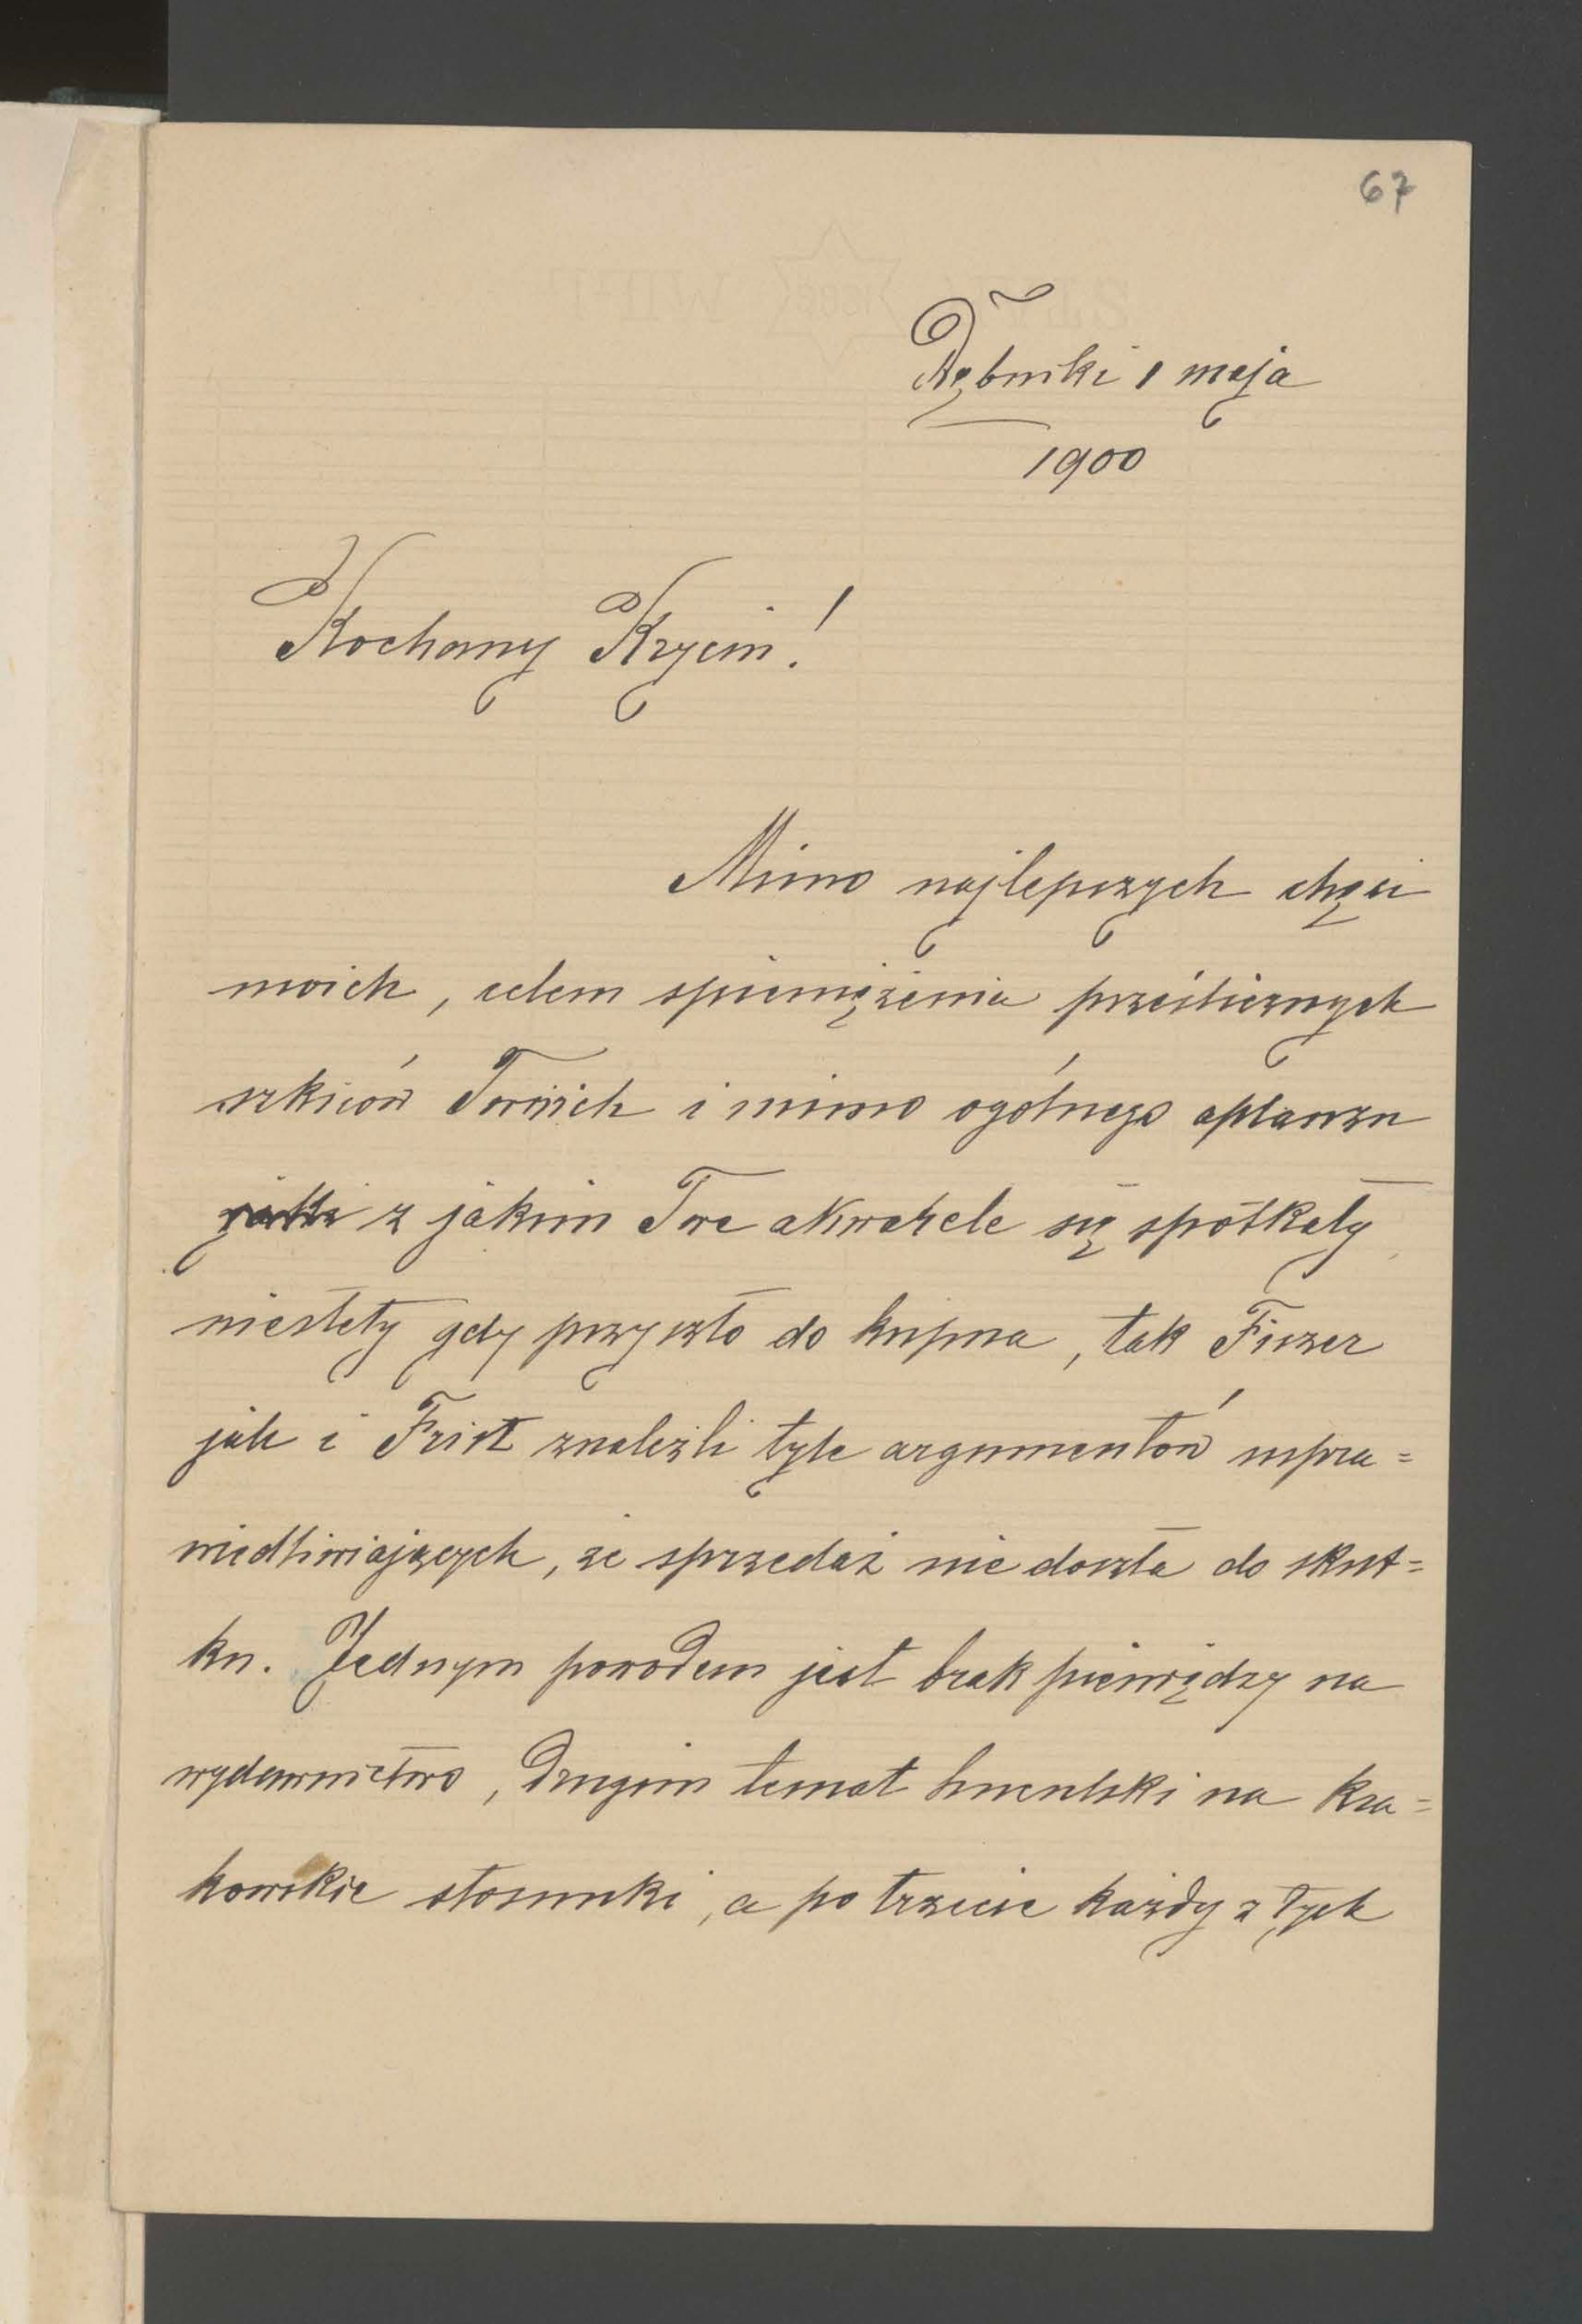 67
Dębniki 1 maja
1900
Kochany Krzciu!
Mimo najlepszych chęci
moich, celem spieniężenia prześlicznych
szkiców Twoich i mimo ogólnego aplauzu
z jakim Twe akwarele się spotkały
niestety gdy przyszło do kupna, tak Fiszer
jak i Frist znaleźli tyle argumentów uspra=
wiedliwiających, że sprzedaż nie doszła do skut=
ku. Jednym powodem jest brak pieniędzy na
wydawnictwo, drugim temat huculski na kra=
kowskie stosunki, a po trzecie każdy z tych